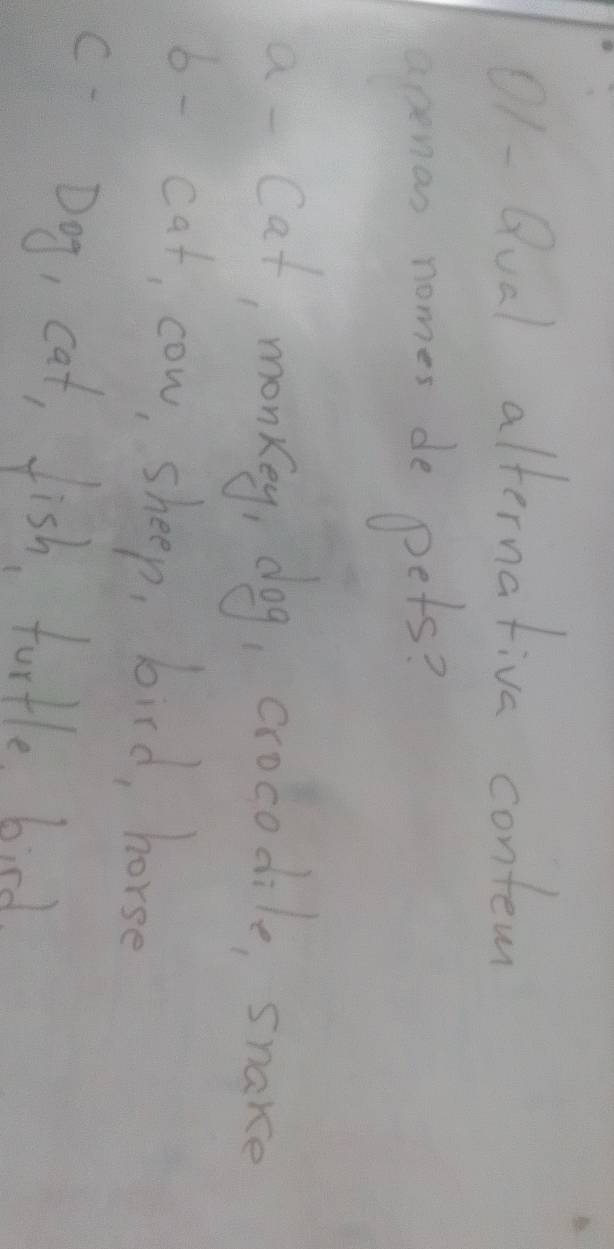 01 - Qual alternativa contem
apenas nomes de pets?
a - Cat, monkey, dog, crocodile, snake
b - cat, cow, sheep, bird, horse
c - Dog, cat, fish, turtle, bird.